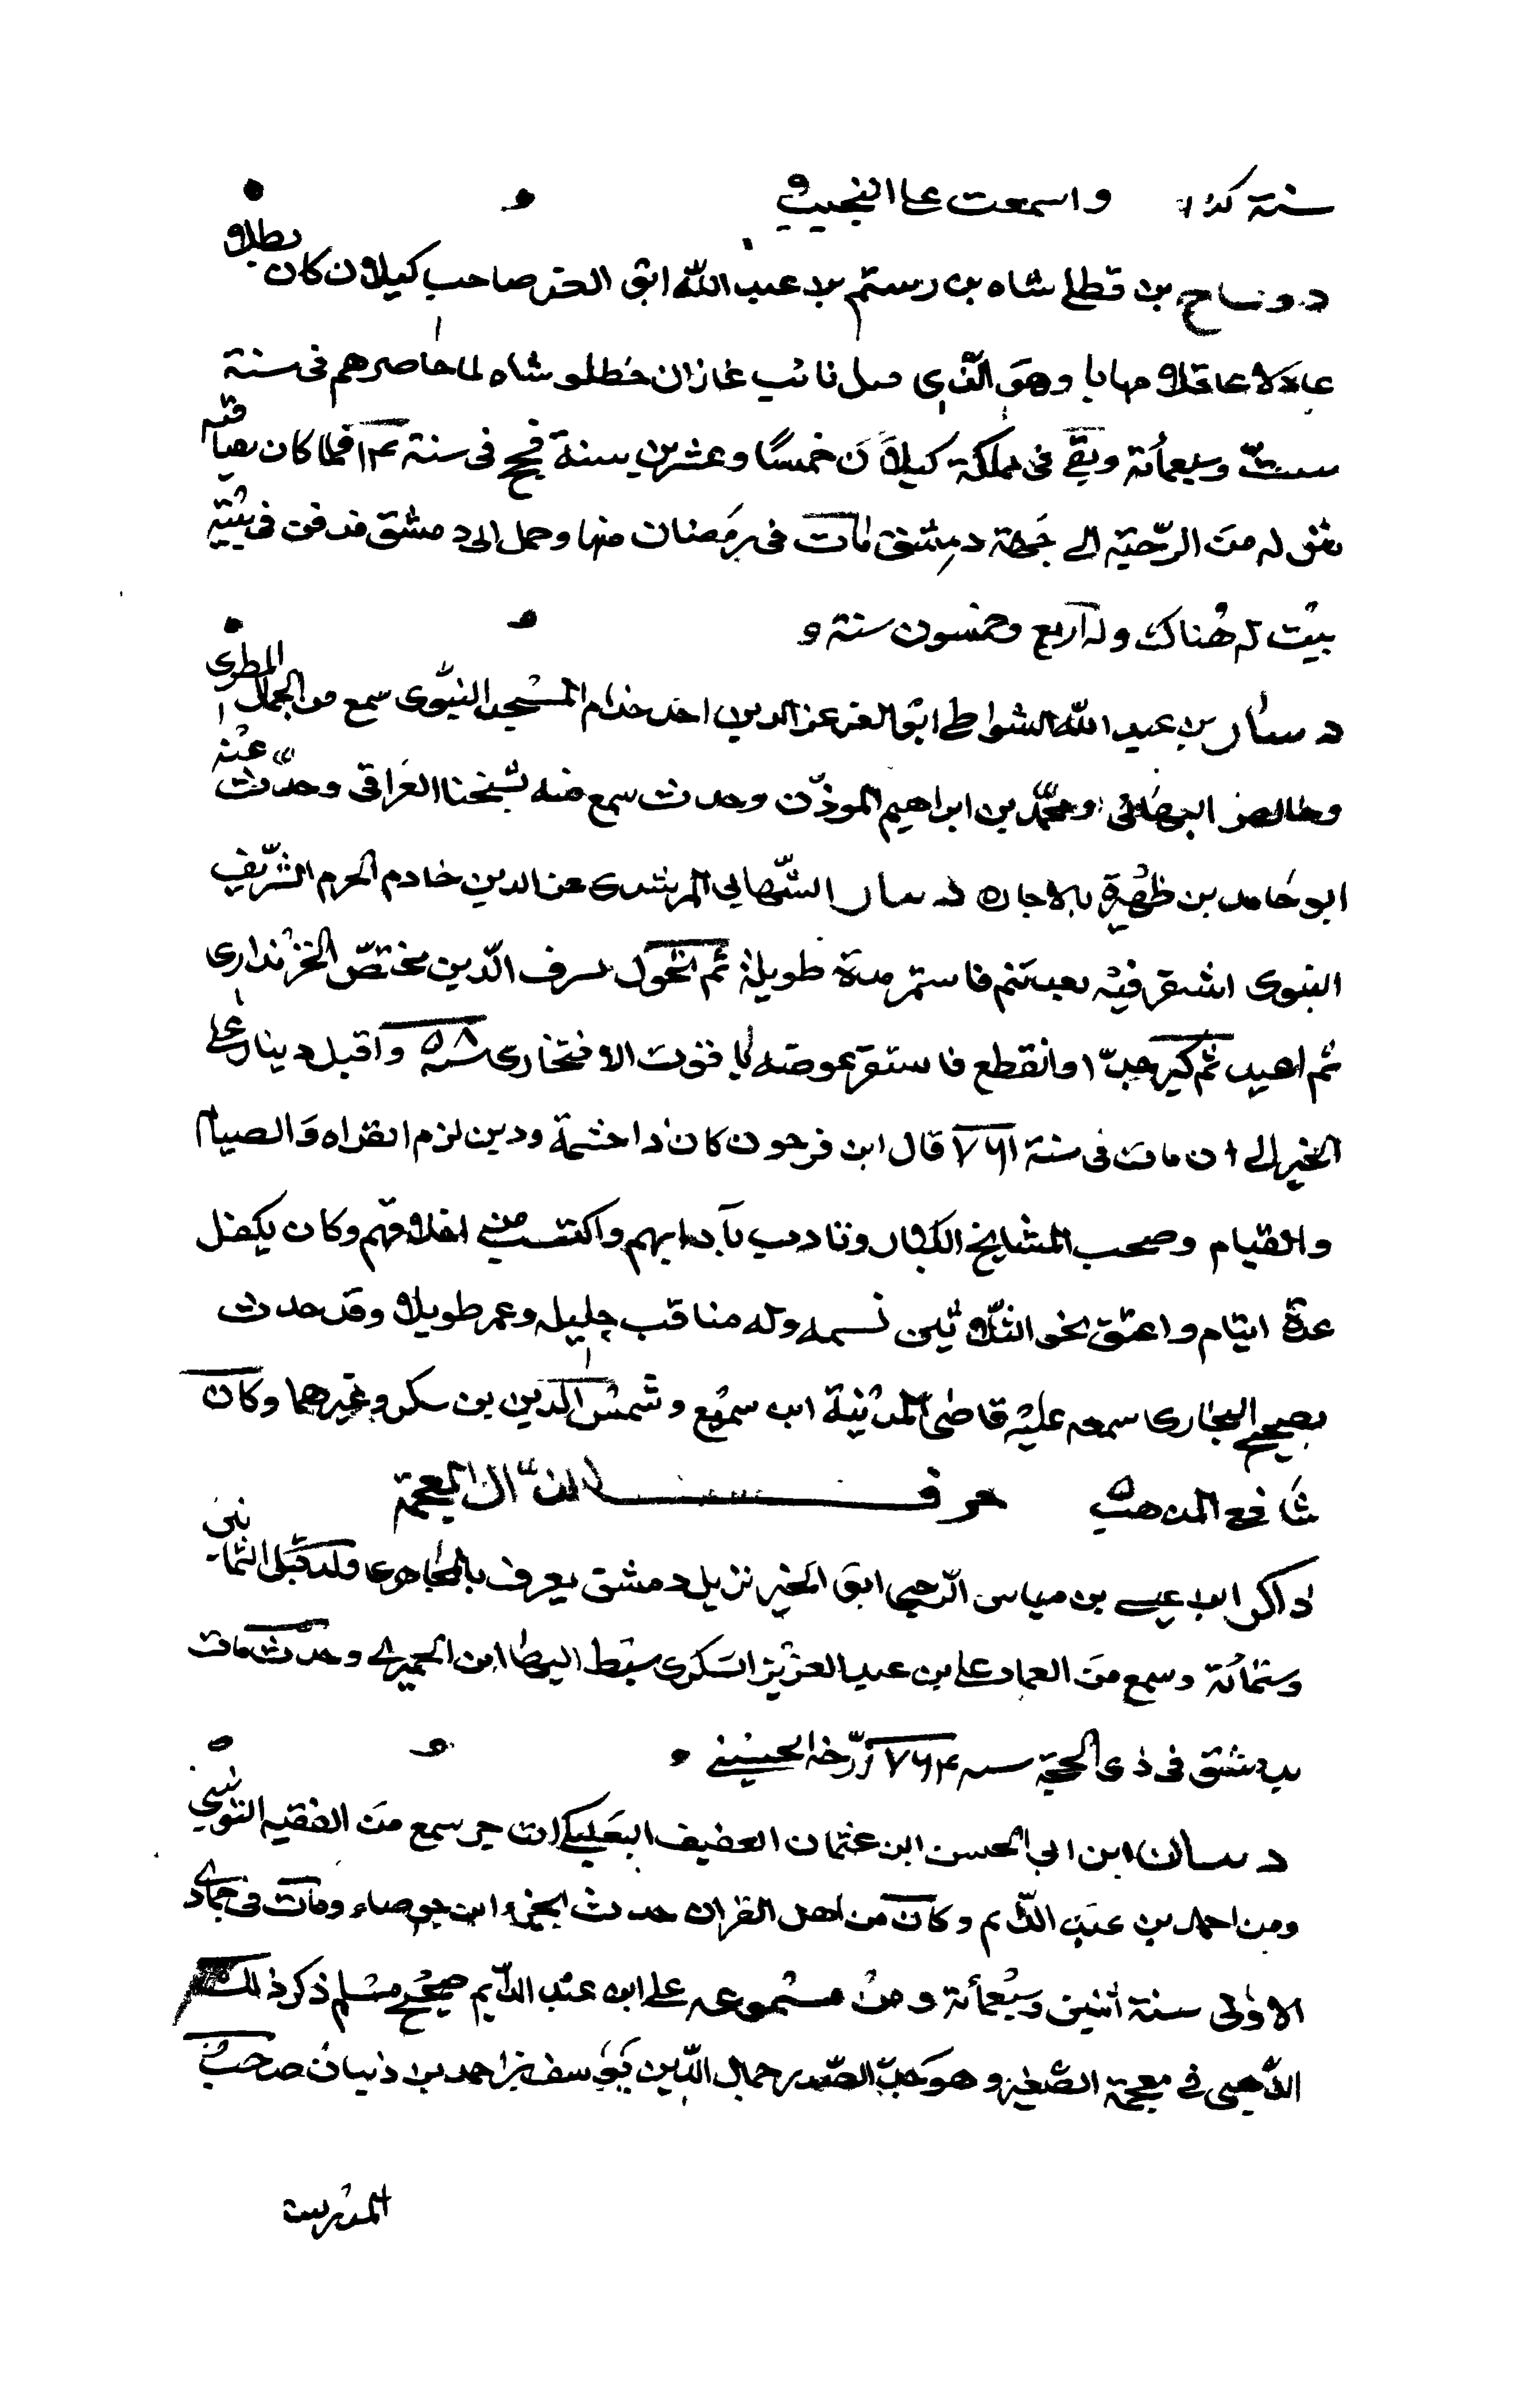 سنة كذا واسمعت على النجيب
دوباج بن قطلي شاه بن رستم بن عبد الله ابو العز صاحب كيلان كان بطلا
عادلا عاقلا مهابا وهو الذي قتل نائب غازان خطلو شاه لما حاصرهم في سنة
ست وسبعمائة وبقي في مملكة كيلان خمسا وعشرين سنة فحج في سنة فلما كان
من الرحبة الى جهة دمشق مات في رمضان منها وحمل الى دمشق فدفن في
بيت له هناك وله اربع وخمسون سنة
دينار بن عبد الله الشواطي ابو العز عز الدين احد خدام المسجد النبوي سمع من الجمال المطري
وخالص البهائي ومحمد بن ابراهيم الموذن وحدث سمع منه شيخنا العراقي وحدث عنه
ابو حامد بن ظهيرة بالاجازه دينار الشهابي المرشدي عز الدين خادم الحرم الشريف
النبوي استقر فيه فاستمر مدة طويلة ثم شرف الدين مختص الخزنداري
ثم اعيد ثم كبر جدا وانقطع فاستقر عوضه ياقوت الافتخاري سنة ٥٨ واقبل دينار على
الخير الى ان مات في سنة ٧٦١ قال ابن فرحون كان ذا حشمة ودين لزم القراه والصيام
والقيام وصحب المشايخ الكبار وتادب بآدابهم واكتسب من اخلاقهم وكان يكفل
عدة ايتام واعتق نحو الثلاثين نسمه وله مناقب جليله وعمر طويلا وقد حدث
بصحيح البخاري سمعه عليه قاضي المدينة ابن سميع وشمس الدين بن سكر وغيرهما وكان
شافعي المذهب حرف الذال المعجمة
ذاكر ابن عيسى بن مياس الرحبي ابو الخير نزيل دمشق يعرف ولد قبل الثمانين
وستمائة وسمع من العماد علي بن عبد العزيز السكري سبط البها ابن الحميري وحدث مات
بدمشق في ذي الحجة سنه ٧٦۴ ارخه الحسيني
ذبيان ابن ابي الحسن ابن عثمان العفيف البعلبكي التاجر سمع من الفقيه اليونيني
ومن احمد بن عبد الدايم وكان من اهل القران حدث بجزء ابن جوصاء ومات في جمادى
الاولى سنة اثنين وسبعمائة ومن مسموعه على ابن عبد الدايم صحيح مسلم ذكر ذلك
الذهبي في معجمة الصغير وهو جد الصدر جمال الدين يوسف بن احمد بن ذبيان صاحب
المدرسة